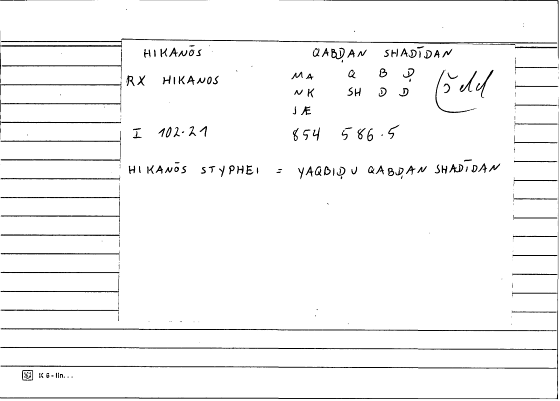 HIKANŌS QABḌAN SHADĪDAN
RX HIKANOS MA Q B Ḍ
NK SH D D
JÆ
I 102.21 854 586.5
HIKANŌS STYPHEI = YAQBIḌU QABḌAN SHADĪDAN
K 6 - lin...